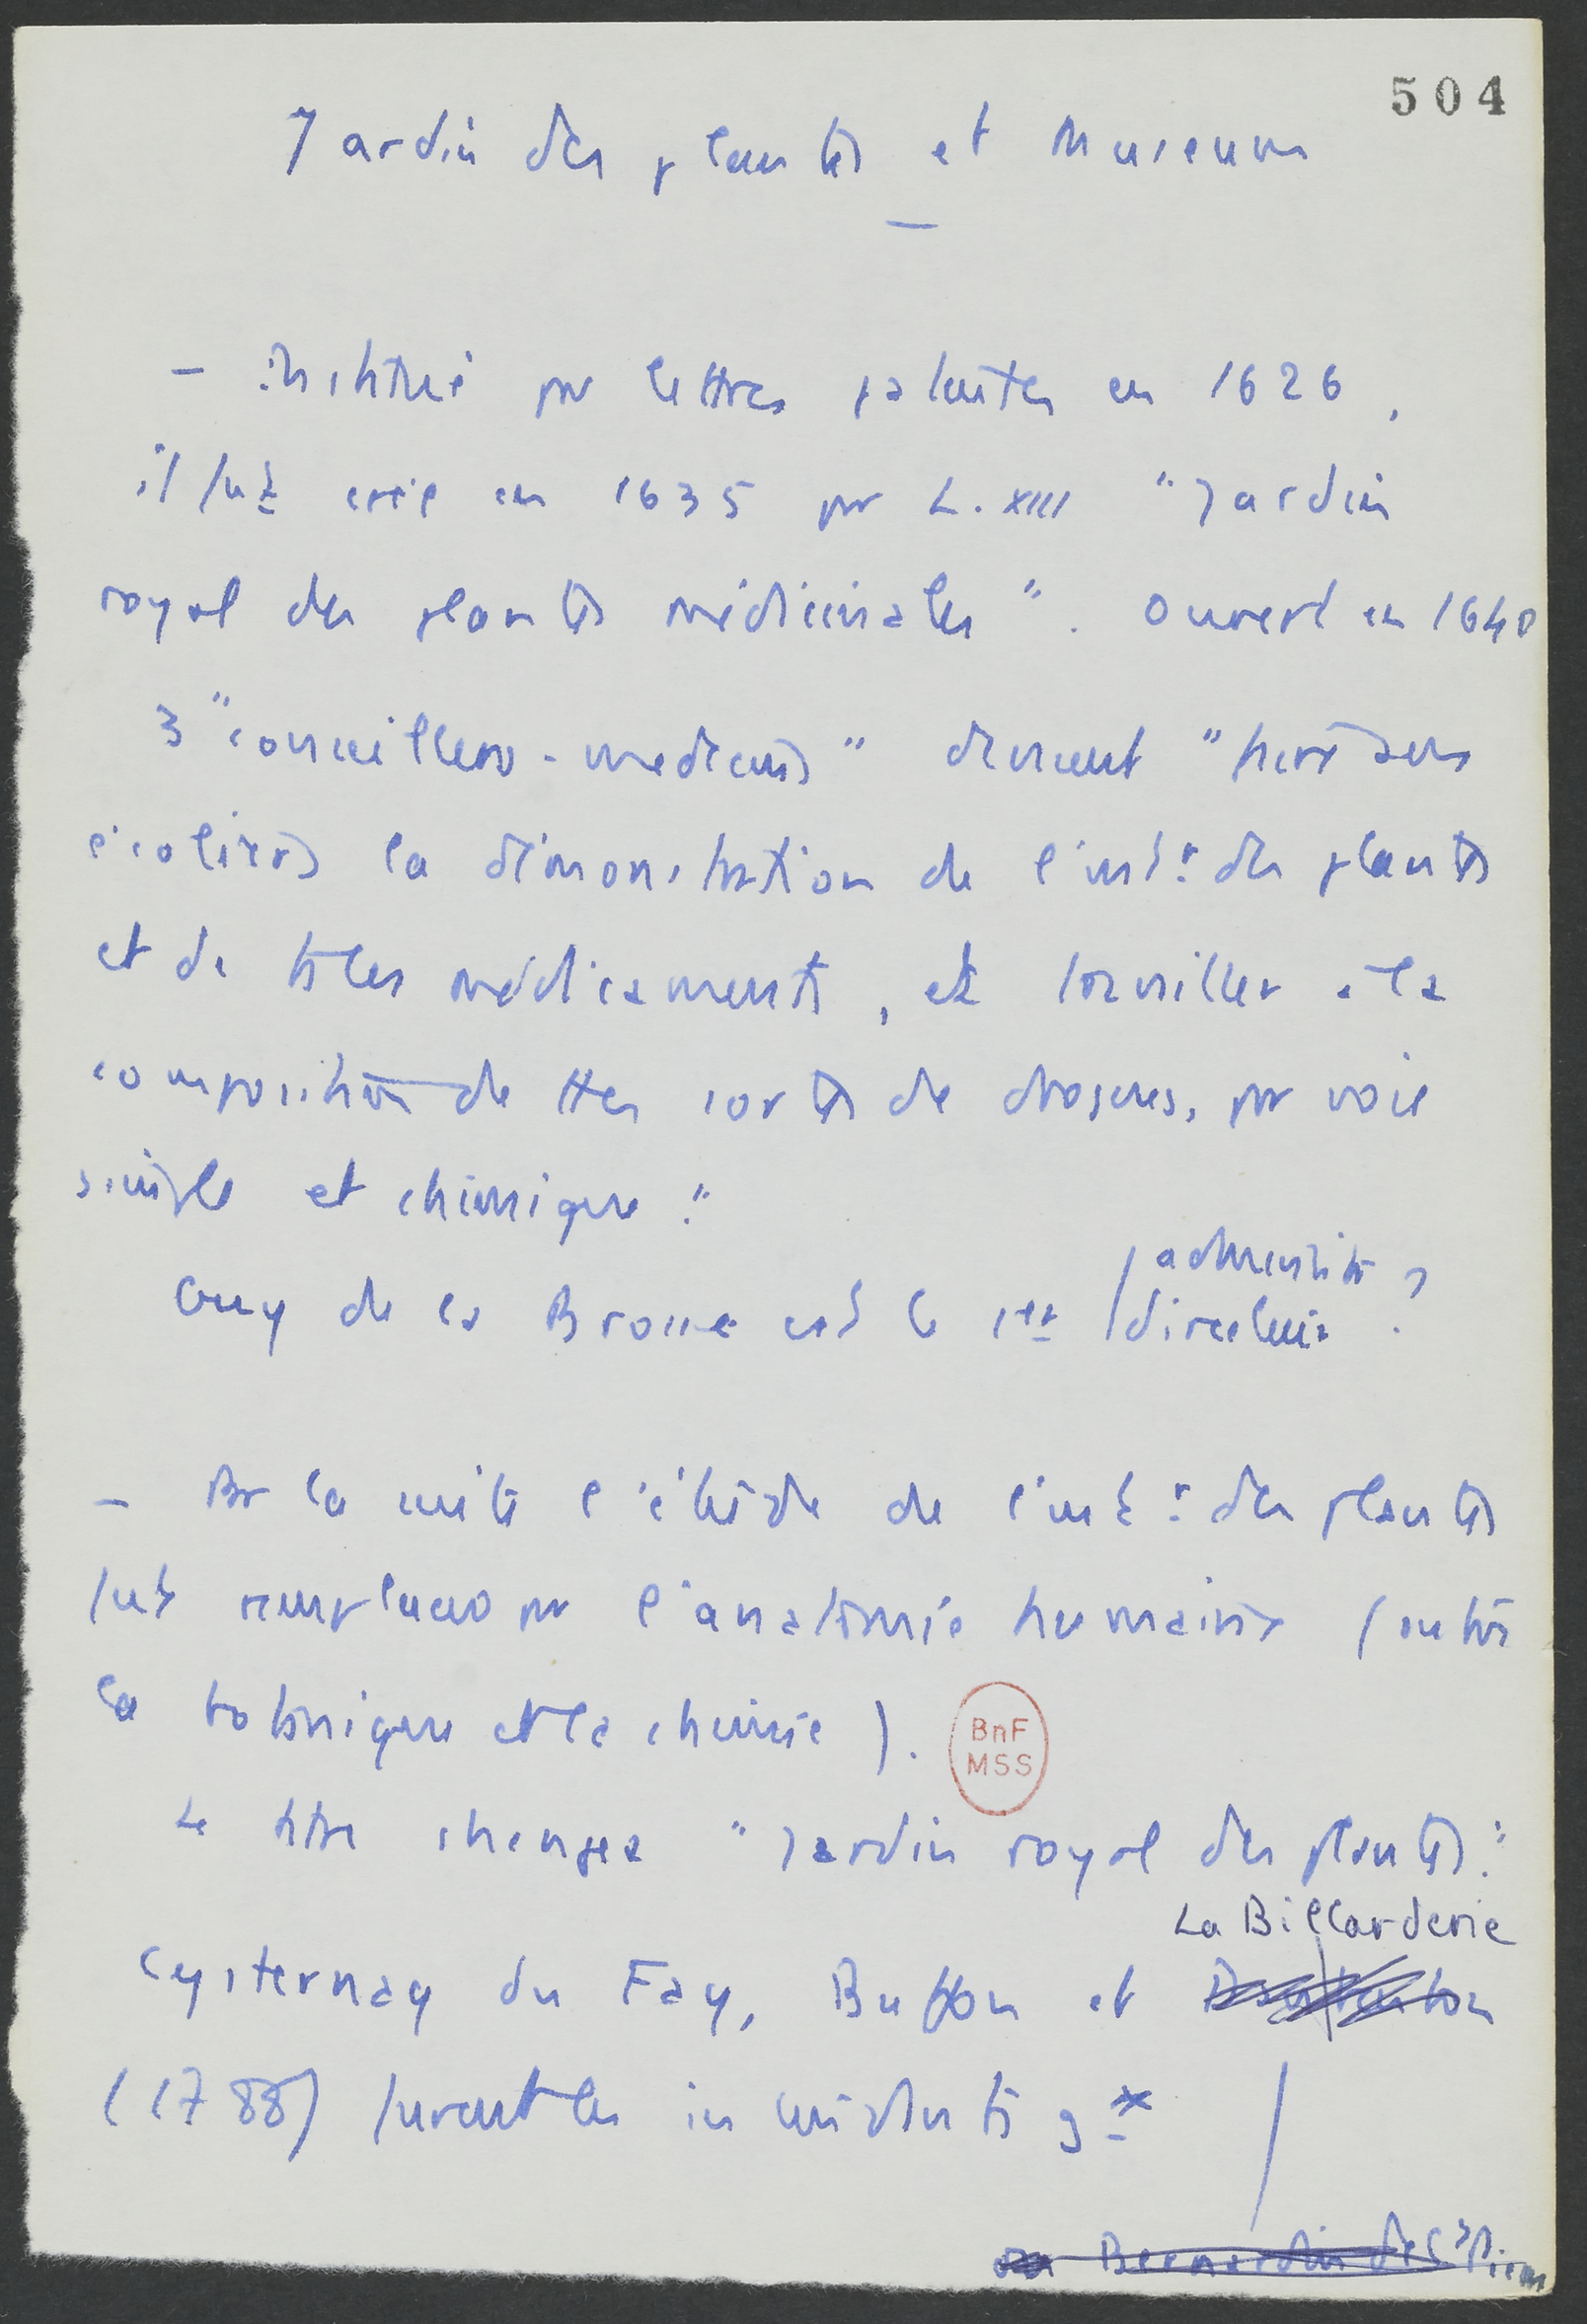 504
Jardin des plantes et Museum
– institué par lettres patentes en 1626,
il fut créé en 1635 par L. XIII "Jardin
royal des plantes médicinales". Ouvert en 1640
3 "conseillers-medecins" devaient "faire aux
écoliers la démonstration de l'intr des plantes
et de ts les médicaments, et travailler à la
composition de ttes sortes de drogues, par voie
simple et chimique."
administr ?
Guy de la Brosse est le 1er / directeur
– Par la suite l'étude de l'intr des plantes
fut remplacée par l'anatomie humaine (outre
la botanique et la chimie).
BnF
MSS
Le titre changea "Jardin royal des plantes."
La Billarderie
Cysternay du Fay, Buffon et
(1788) furent les intendants gx
Bernardin de St Pierre